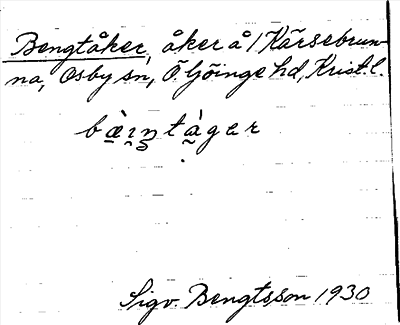 Bengtåker, åker å 1 Kärsebrun-
na, Osby sn, Ö. Göinge hd, Krist. l.
bæ̀ıntàger
Sigv. Bengtsson 1930